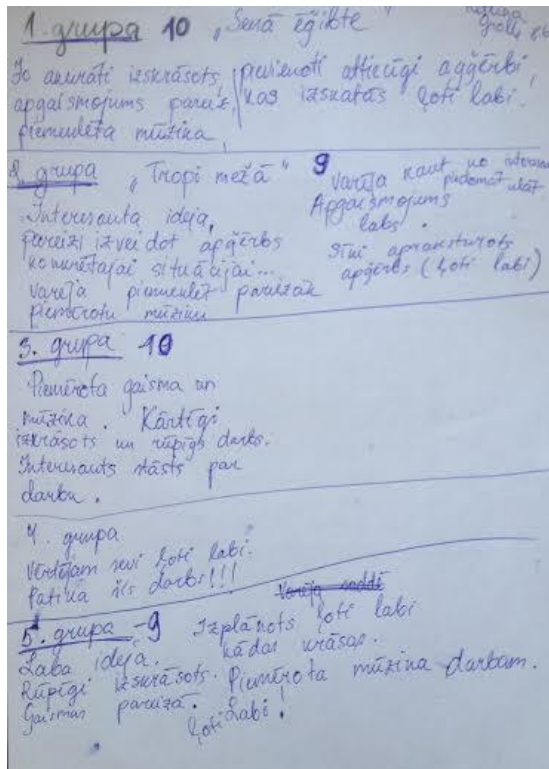 1. grupa 10 „Senā ēģipte"
Ļo akurāti izskrāsots, pievienoti attiecīgi apģērbi,
apgaismojums pareiz, kas izskatās ļoti labi.
piemeklēta mūzika,
2. grupa „Tropi mežā" 9
Interesanta ideja,
pareizi izveidot apģērbs
konkrētajai situācijai...
varēja piemeklēt pareizāk
piemērotu mūziku
Varēja kaut no
piedomāt klāt
Apgaismojums
labs.
Sīki aprakstīrots
apģērbs (ļoti labi)
3. grupa 10
Piemērota gaisma un
mūzika. Kārtīgi
izkrāsots un rūpīgs darbs.
Interesants stāsts par
darbu.
4. grupa
Vērtējam sevi ļoti labi.
Patika šis darbs!!!
5. grupa - 9
Laba ideja.
Rūpīgi izskrāsots.
Gaismas pareizā.
Izplānots ļoti labi
kādas krāsas.
Piemērota mūzika darbam.
Ļoti Labi!